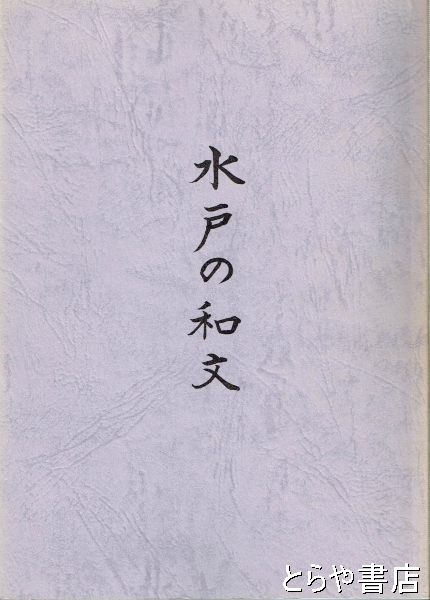 水戸の和文
とらや書店